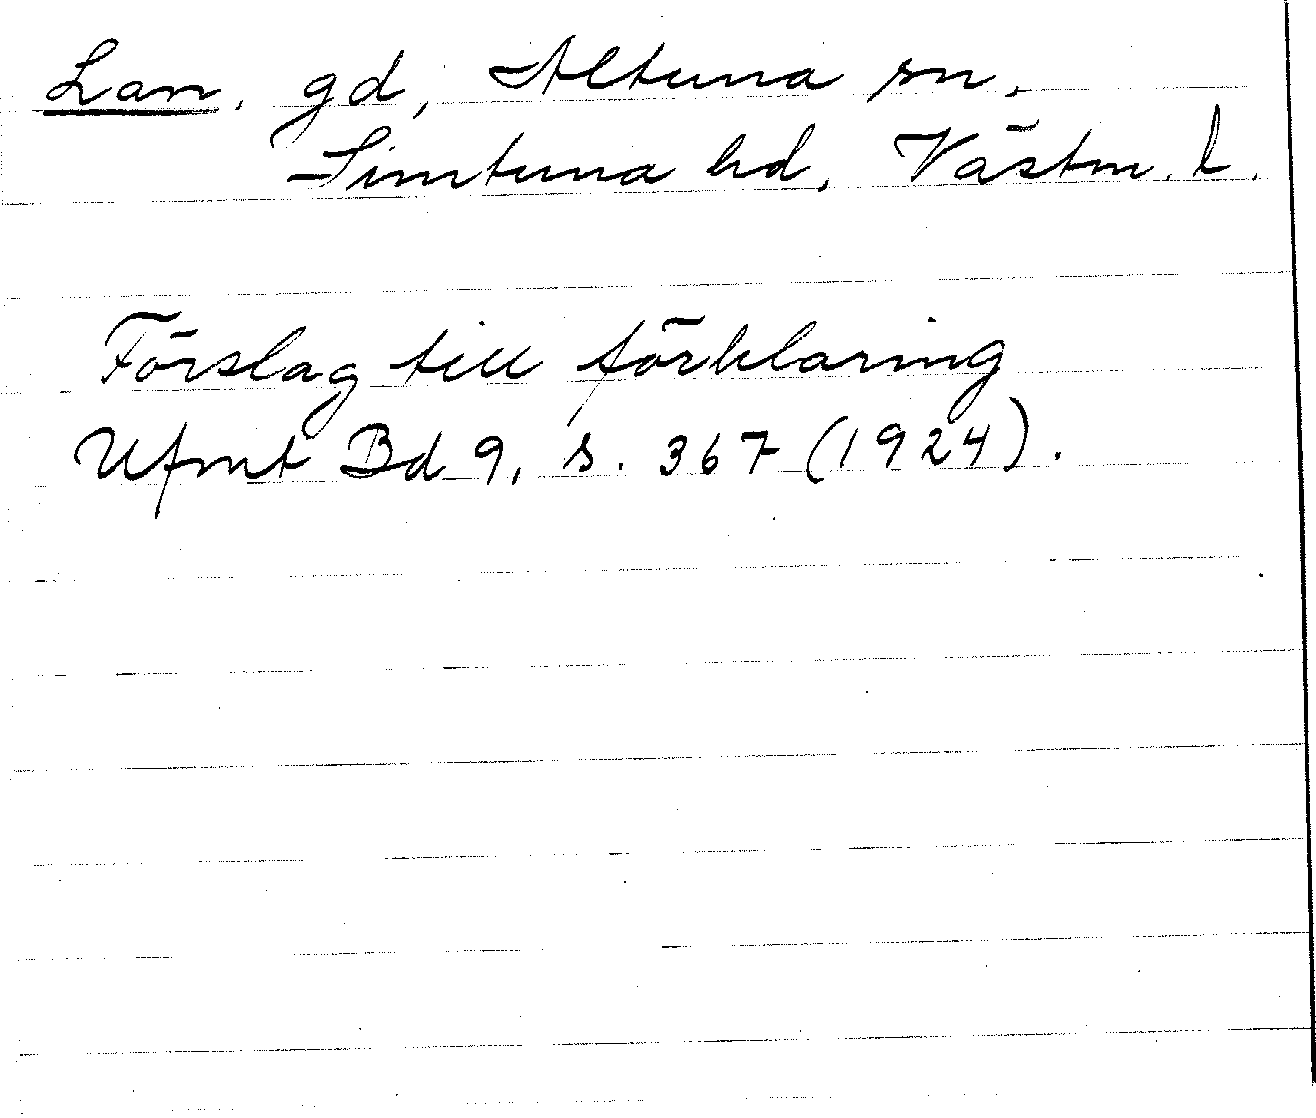 Lan, gd, Altuna sn,
Simtuna hd, Västm. l.
Förslag till förklaring
Ufmt Bd 9, s. 367 (1924).